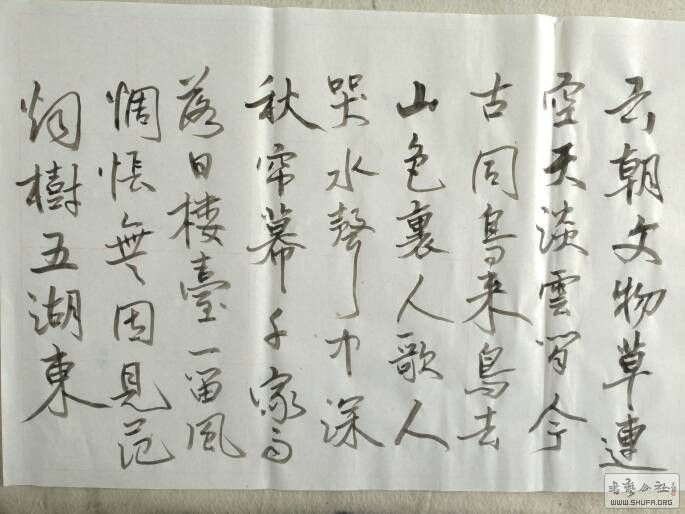 六朝文物草連
空天淡雲閒今
古同鳥來鳥去
山色裏人歌人
哭水聲中深
秋帘幕千家雨
落日楼臺一笛風
惆悵無因見范
烟樹五湖東
书艺公社
WWW.SHUFA.ORG